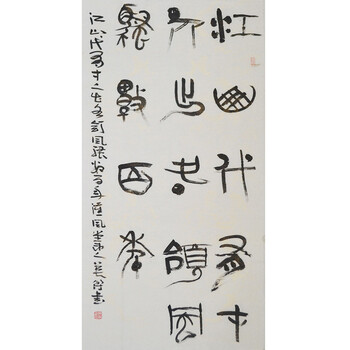 江山代有才
人出各領風
騷數百年
江山代有才人出各領風騷數百年